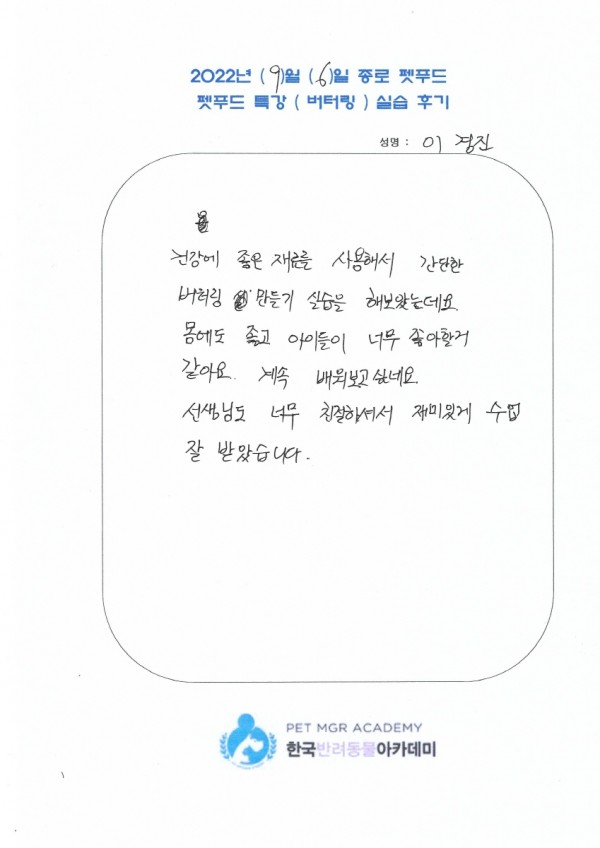 2022년 (9)월 (6)일 종로 펫푸드
펫푸드 특강 ( 버터링 ) 실습 후기
성명 : 이 경진
건강에 좋은 재료를 사용해서 간단한
버터링 만들기 실습을 해보았는데요
몸에도 좋고 아이들이 너무 좋아할거
같아요. 계속 배워보고싶네요.
선생님도 너무 친절하셔서 재미있게 수업
잘 받았습니다.
PET MGR ACADEMY
한국반려동물아카데미